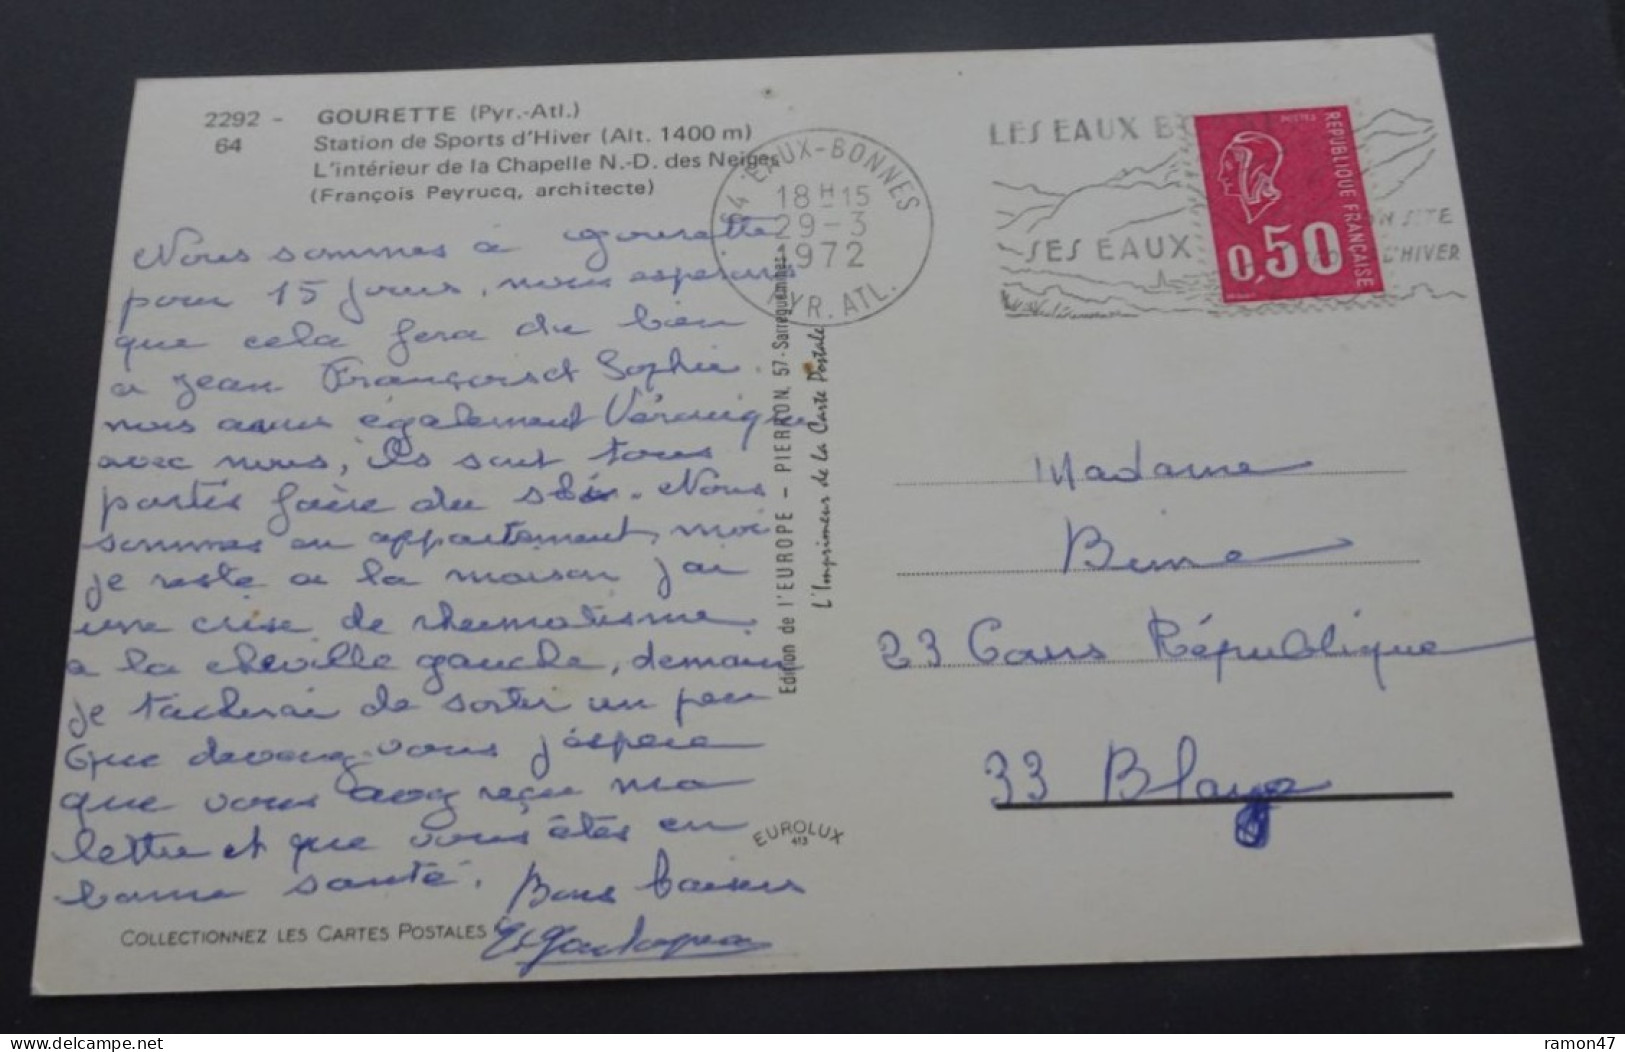 2292 - GOURETTE (Pyr.-Atl.)
64 Station de Sports d'Hiver (Alt. 1400 m)
L'intérieur de la Chapelle N.-D. des Neiges
(François Peyrucq, architecte)
Nous sommes à Gourette
pour 15 jours, nous esperons
que cela fera du bien
a Jean-François et Sophie.
nous avons également Véronique
avec nous, ils sont tous
partis faire du ski. Nous
sommes en appartement, moi
je reste a la maison j'ai
une crise de rhumatisme
a la cheville gauche, demain
je tacherai de sortir un peu
Que devenez-vous j'espere
que vous avez reçu ma
lettre et que vous êtes en
bonne santé. Bons baisers
COLLECTIONNEZ LES CARTES POSTALES
EUROLUX
413
Edition de l'EUROPE - PIERRON, 57-Sarreguemines
L'Imprimeur de la Carte Postale
64 EAUX-BONNES
18 H 15
29-3
1972
PYR. ATL.
LES EAUX B
SES EAUX
N SITE
L'HIVER
POSTES
REPUBLIQUE FRANCAISE
0,50
Madame
23 Cours République
33 Blaye
ramon47